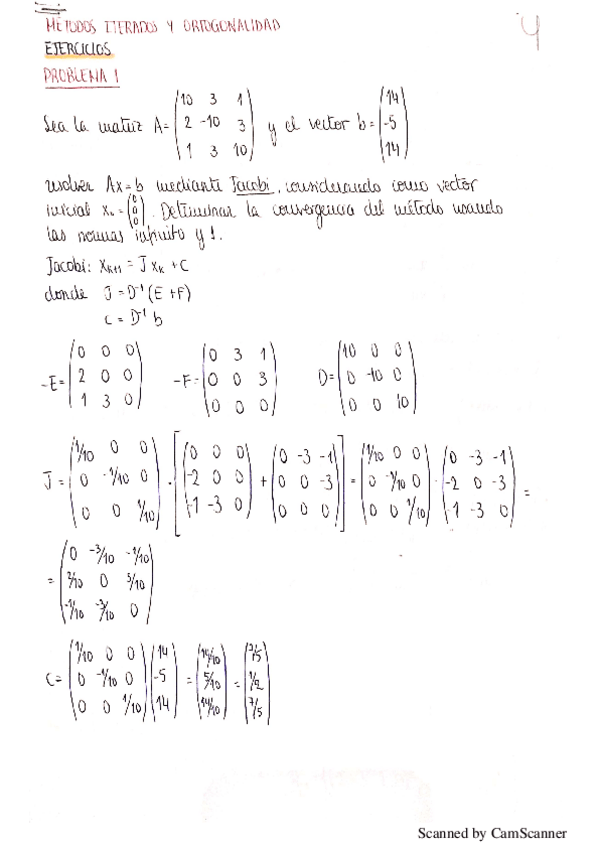 MÉTODOS ITERADOS Y ORTOGONALIDAD
4
EJERCICIOS
PROBLEMA 1
Sea la matriz A= (10 3 1; 2 -10 3; 1 3 10) y el vector b= (14; -5; 14)
resolver Ax=b mediante Jacobi, considerando como vector
inicial x₀=(0; 0; 0). Determinar la convergencia del método usando
las normas infinito y 1.
Jacobi: x_{k+1} = J x_k + C
donde J=D⁻¹(E+F)
C = D⁻¹ b
-E= (0 0 0; 2 0 0; 1 3 0) -F= (0 3 1; 0 0 3; 0 0 0) D= (10 0 0; 0 -10 0; 0 0 10)
J= (1/10 0 0; 0 -1/10 0; 0 0 1/10) · [(0 0 0; -2 0 0; -1 -3 0) + (0 -3 -1; 0 0 -3; 0 0 0)] = (1/10 0 0; 0 -1/10 0; 0 0 1/10) · (0 -3 -1; -2 0 -3; -1 -3 0) =
= (0 -3/10 -1/10; 2/10 0 3/10; -1/10 -3/10 0)
C= (1/10 0 0; 0 -1/10 0; 0 0 1/10) (14; -5; 14) = (14/10; 5/10; 14/10) = (7/5; 1/2; 7/5)
Scanned by CamScanner